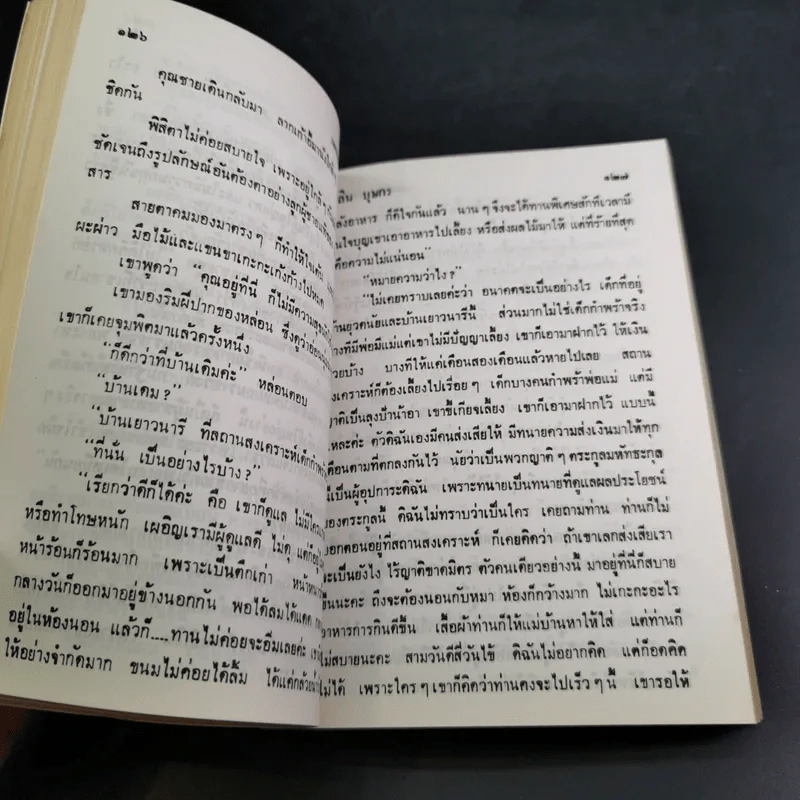 ๑๒๖
คุณชายเดินกลับมา ลากเก้าอี้มานั่ง
ชิดกัน
พิสิตาไม่ค่อยสบายใจ เพราะอยู่ใกล้
ชัดเจนถึงรูปลักษณ์อันต้องตาอย่างลูกผู้ชาย
สาร
สายตาคมมองมาตรงๆ ก็ทำให้ใจเต้น
ผะผ่าว มือไม้และแขนขาเกะกะเก้งก้างไปหมด
เขาพูดว่า “คุณอยู่ที่นี่ ก็ไม่มีความสุข
เขามองริมฝีปากของหล่อน ซึ่งดูว่าอ่อน
เขาก็เคยจุมพิตมาแล้วครั้งหนึ่ง
“ก็ดีกว่าที่บ้านเดิมค่ะ” หล่อนตอบ
“บ้านเดิม?”
“บ้านเยาวนารี ที่สถานสงเคราะห์เด็กกำพร้า
“ที่นั่น เป็นอย่างไรบ้าง?”
“เรียกว่าดีก็ได้ค่ะ คือ เขาก็ดูแล ไม่มีใคร
หรือทำโทษหนัก เผอิญเรามีผู้ดูแลดี ไม่ดุ แต่ก็อยู่
หน้าร้อนก็ร้อนมาก เพราะเป็นตึกเก่า หน้าหนาว
กลางวันก็ออกมาอยู่ข้างนอกกัน พอได้ลมได้แดด
อยู่ในห้องนอน แล้วก็....ทานไม่ค่อยจะอิ่มเลยค่ะ
ให้อย่างจำกัดมาก ขนมไม่ค่อยได้ลิ้ม ได้แค่กล้วย
ลิน บุษกร
๑๒๗
ลังอาหาร ก็ดีใจกันแล้ว นานๆ จึงจะได้ทานพิเศษสักทีเวลามี
นใจบุญเขาเอาอาหารไปเลี้ยง หรือส่งผลไม้มาให้ แต่ที่ร้ายที่สุด
คือความไม่แน่นอน”
“หมายความว่าไง?”
“ไม่เคยทราบเลยค่ะว่า อนาคตจะเป็นอย่างไร เด็กที่อยู่
านยุวดนัยและบ้านเยาวนารีนี้ ส่วนมากไม่ใช่เด็กกำพร้าจริง
างทีมีพ่อมีแม่แต่เขาไม่มีปัญญาเลี้ยง เขาก็เอามาฝากไว้ ให้เงิน
วยบ้าง บางทีให้แค่เดือนสองเดือนแล้วหายไปเลย สถาน
งเคราะห์ก็ต้องเลี้ยงไปเรื่อยๆ เด็กบางคนกำพร้าพ่อแม่ แต่มี
ญาติเป็นลุงป้าน้าอา เขาขี้เกียจเลี้ยง เขาก็เอามาฝากไว้ แบบนี้
หละค่ะ ตัวดิฉันเองมีคนส่งเสียให้ มีทนายความส่งเงินมาให้ทุก
ดือนตามที่ตกลงกันไว้ นัยว่าเป็นพวกญาติๆ ตระกูลมหัทธะกุล
นี้เป็นผู้อุปการะดิฉัน เพราะทนายเป็นทนายที่ดูแลผลประโยชน์
องตระกูลนี้ ดิฉันไม่ทราบว่าเป็นใคร เคยถามท่าน ท่านก็ไม่
อกตอนอยู่ที่สถานสงเคราะห์ ก็เคยคิดว่า ถ้าเขาเลิกส่งเสียเรา
จะเป็นยังไง ไร้ญาติขาดมิตร ตัวคนเดียวอย่างนี้ มาอยู่ที่นี่ก็สบาย
ขึ้นนะคะ ถึงจะต้องนอนกับหมา ห้องก็กว้างมาก ไม่เกะกะอะไร
อาหารการกินดีขึ้น เสื้อผ้าท่านก็ให้แม่บ้านหาให้ใส่ แต่ท่านก็
ไม่สบายนะคะ สามวันดีสี่วันไข้ ดิฉันไม่อยากคิด แต่ก็อดคิด
ไม่ได้ เพราะใครๆ เขาก็คิดว่าท่านคงจะไปเร็วๆ นี้ เขารอให้